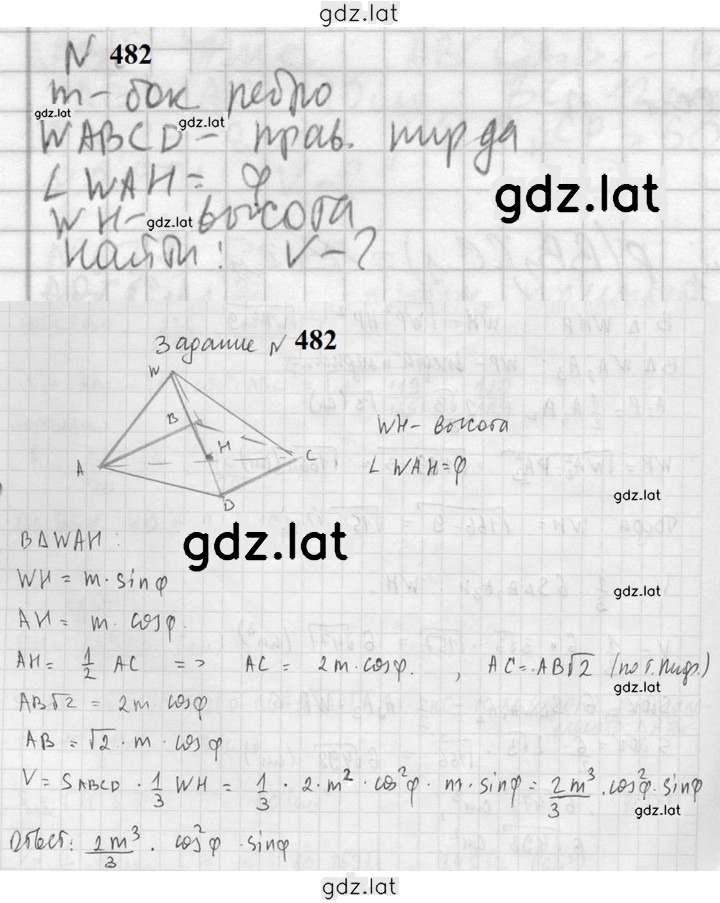 gdz.lat
N 482
m - бок ребро
gdz.lat
WABCD - прав. пир да
gdz.lat
∠WAH = φ
gdz.lat
WH - высота
gdz.lat
Найти: V - ?
Задание N 482
W
B
H
A
C
D
WH - высота
∠WAH = φ
gdz.lat
В ΔWAH:
gdz.lat
WH = m · sinφ
gdz.lat
AH = m · cosφ.
AH = 1/2 AC => AC = 2m · cosφ. , AC = AB√2 (по т. Пиф.)
gdz.lat
AB√2 = 2m cosφ
AB = √2 · m · cosφ
V = SABCD · 1/3 WH = 1/3 · 2 · m² · cos²φ · m · sinφ = 2m³/3 · cos²φ · sinφ
gdz.lat
Ответ: 2m³/3 · cos²φ · sinφ
gdz.lat